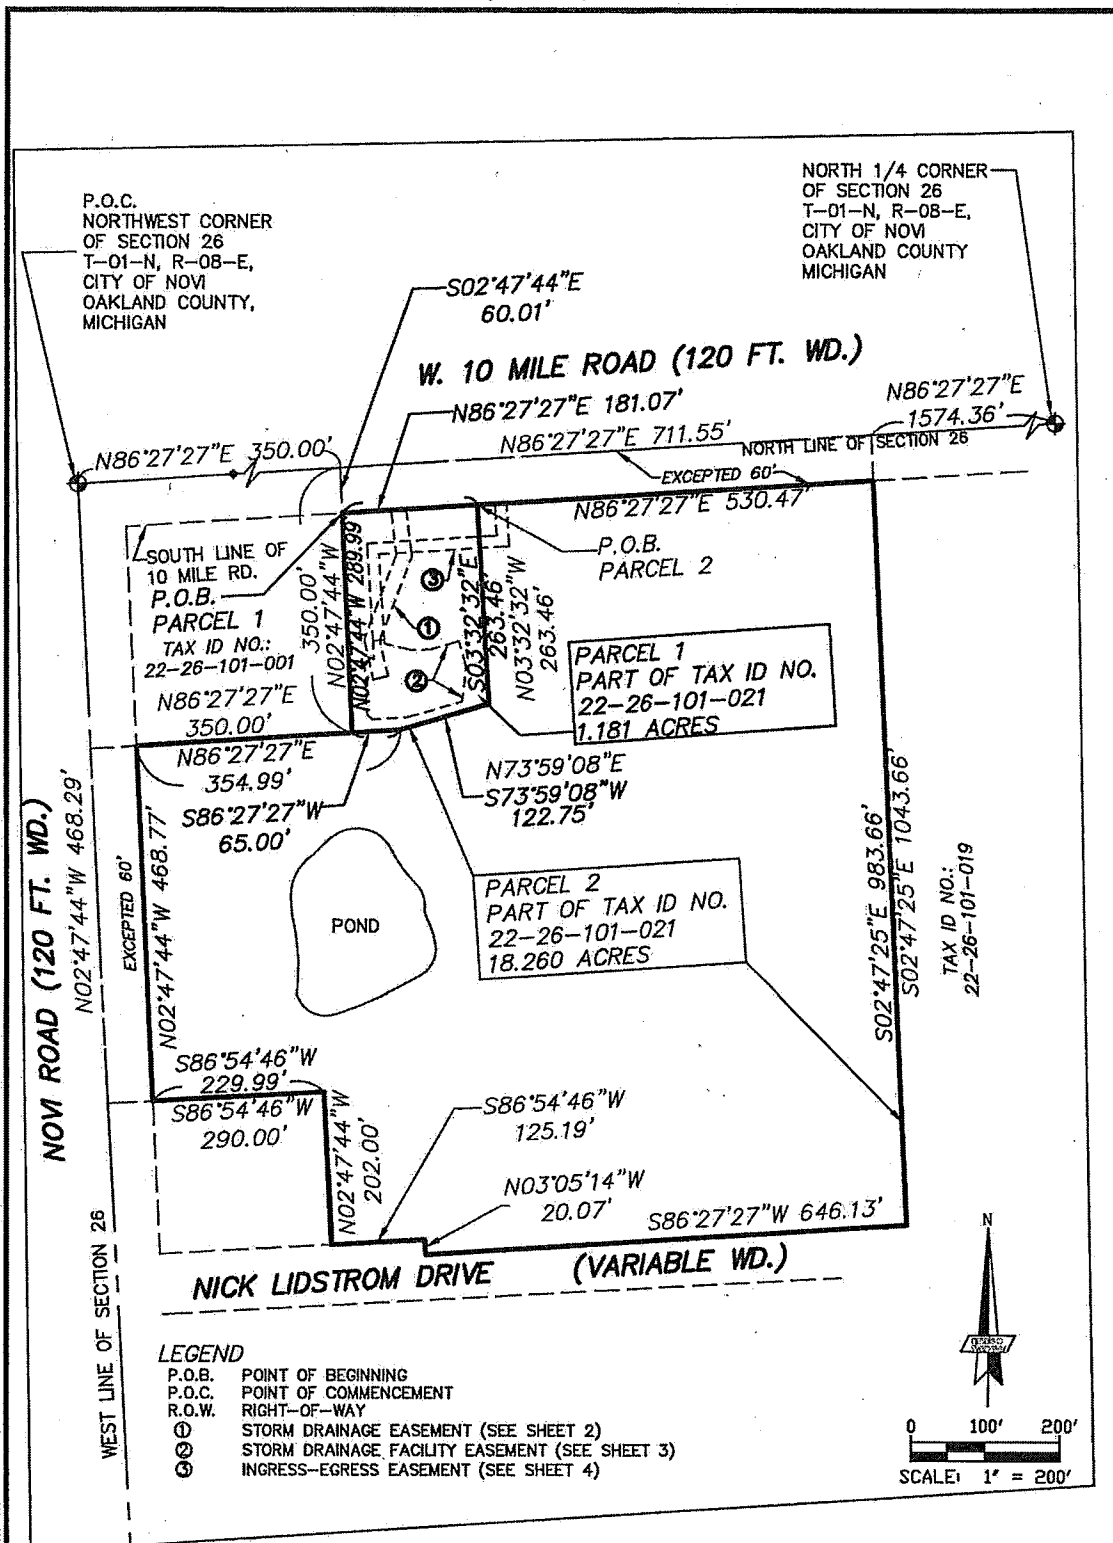 P.O.C.
NORTHWEST CORNER
OF SECTION 26
T-01-N, R-08-E,
CITY OF NOVI
OAKLAND COUNTY,
MICHIGAN
NORTH 1/4 CORNER
OF SECTION 26
T-01-N, R-08-E,
CITY OF NOVI
OAKLAND COUNTY
MICHIGAN
S02°47'44"E
60.01'
W. 10 MILE ROAD (120 FT. WD.)
N86°27'27"E 181.07'
N86°27'27"E
1574.36'
N86°27'27"E 350.00'
N86°27'27"E 711.55'
NORTH LINE OF SECTION 26
EXCEPTED 60'
N86°27'27"E 530.47'
SOUTH LINE OF
10 MILE RD.
P.O.B.
PARCEL 1
TAX ID NO.:
22-26-101-001
N02°47'44"W
350.00'
N02°47'44"W 289.99
③
①
②
S03°32'32"E
263.46'
N03°32'32"W
263.46'
P.O.B.
PARCEL 2
PARCEL 1
PART OF TAX ID NO.
22-26-101-021
1.181 ACRES
N86°27'27"E
350.00'
N86°27'27"E
354.99'
S86°27'27"W
65.00'
N73°59'08"E
S73°59'08"W
122.75'
NOVI ROAD (120 FT. WD.)
N02°47'44"W 468.29'
EXCEPTED 60'
N02°47'44"W 468.77'
POND
PARCEL 2
PART OF TAX ID NO.
22-26-101-021
18.260 ACRES
S02°47'25"E 983.66'
S02°47'25"E 1043.66'
TAX ID NO.:
22-26-101-019
S86°54'46"W
229.99'
S86°54'46"W
290.00'
N02°47'44"W
202.00'
S86°54'46"W
125.19'
N03°05'14"W
20.07'
S86°27'27"W 646.13'
NICK LIDSTROM DRIVE (VARIABLE WD.)
WEST LINE OF SECTION 26
LEGEND
P.O.B. POINT OF BEGINNING
P.O.C. POINT OF COMMENCEMENT
R.O.W. RIGHT-OF-WAY
① STORM DRAINAGE EASEMENT (SEE SHEET 2)
② STORM DRAINAGE FACILITY EASEMENT (SEE SHEET 3)
③ INGRESS-EGRESS EASEMENT (SEE SHEET 4)
N
0 100' 200'
SCALE: 1" = 200'